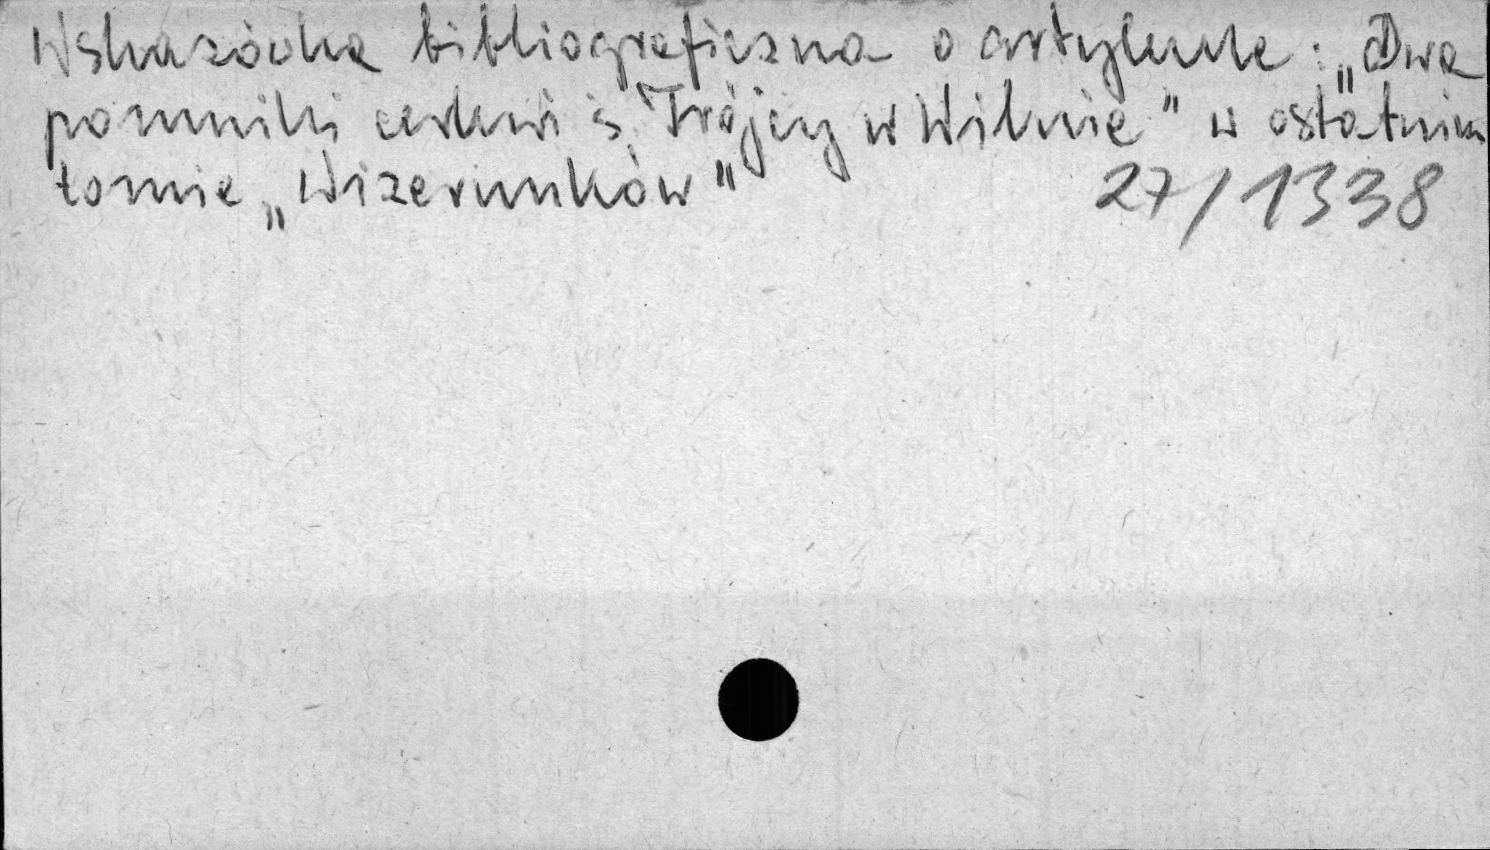 Wskazówka bibliograficzna o artykule: „Dwa
pomniki cerkwi ś. Trójcy w Wilnie" w ostatnim
tomie „Wizerunków"
27/1338